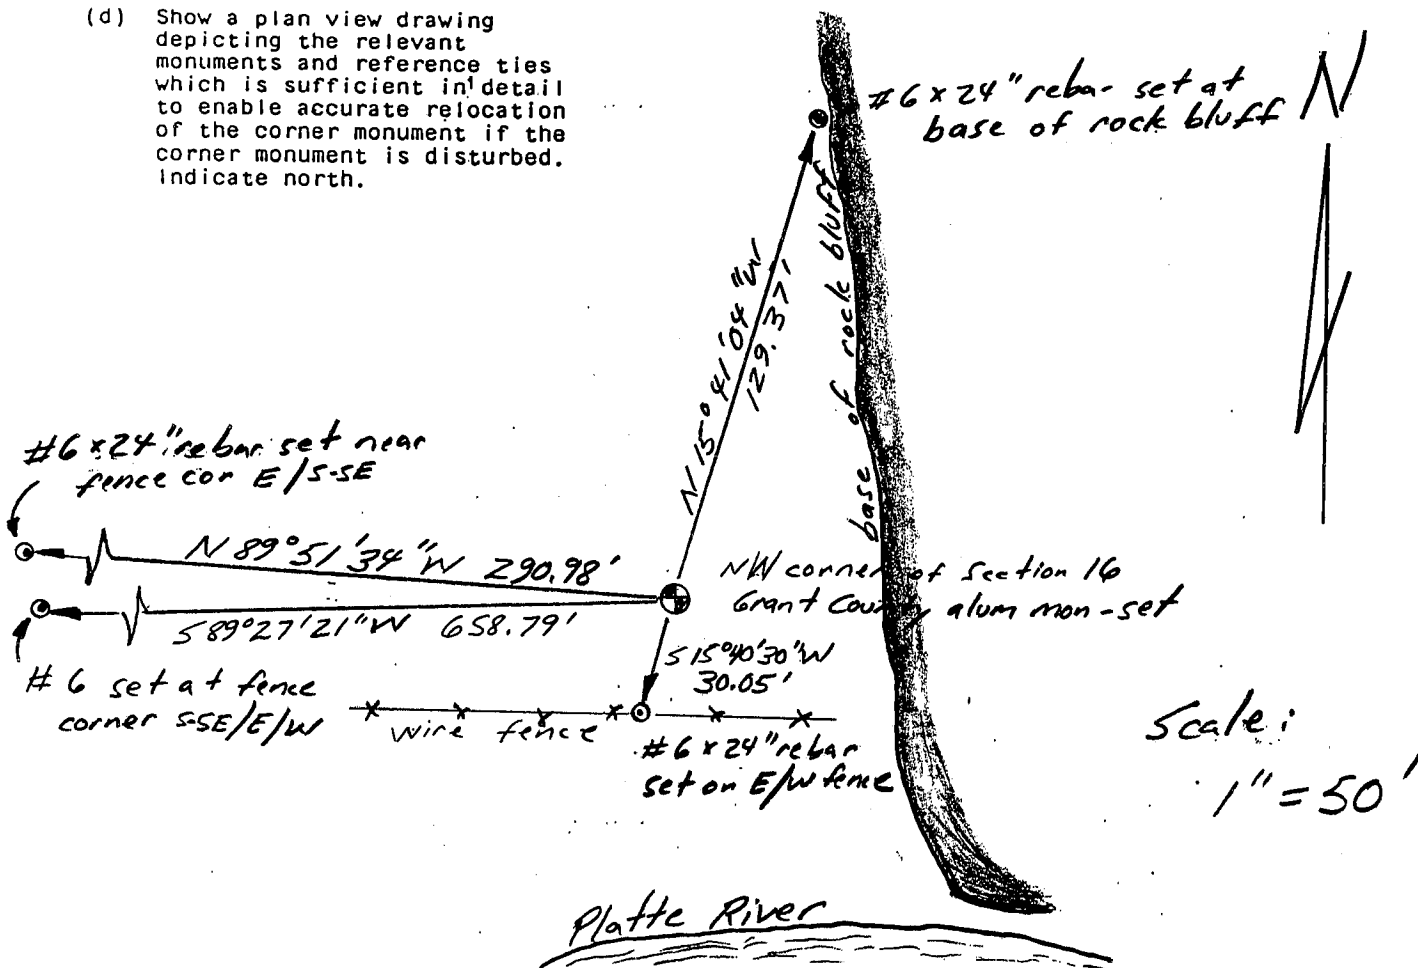 (d) Show a plan view drawing
depicting the relevant
monuments and reference ties
which is sufficient in detail
to enable accurate relocation
of the corner monument if the
corner monument is disturbed.
Indicate north.
#6 x 24" rebar set at
base of rock bluff
N
N 15° 41' 04" W
129.37'
base of rock bluff
#6 x 24" rebar set near
fence cor E/S-SE
N 89° 51' 34" W 290.98'
NW corner of Section 16
Grant County alum mon-set
S 89° 27' 21" W 658.79'
S 15° 40' 30" W
30.05'
#6 set at fence
corner S-SE/E/W
wire fence
#6 x 24" rebar
set on E/W fence
Scale:
1" = 50'
Platte River